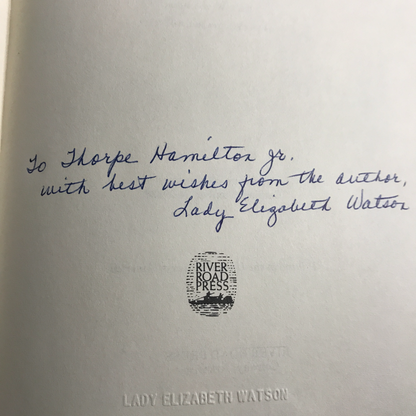 To Thorpe Hamilton Jr.
with best wishes from the author,
Lady Elizabeth Watson
RIVER
ROAD
PRESS
LADY ELIZABETH WATSON